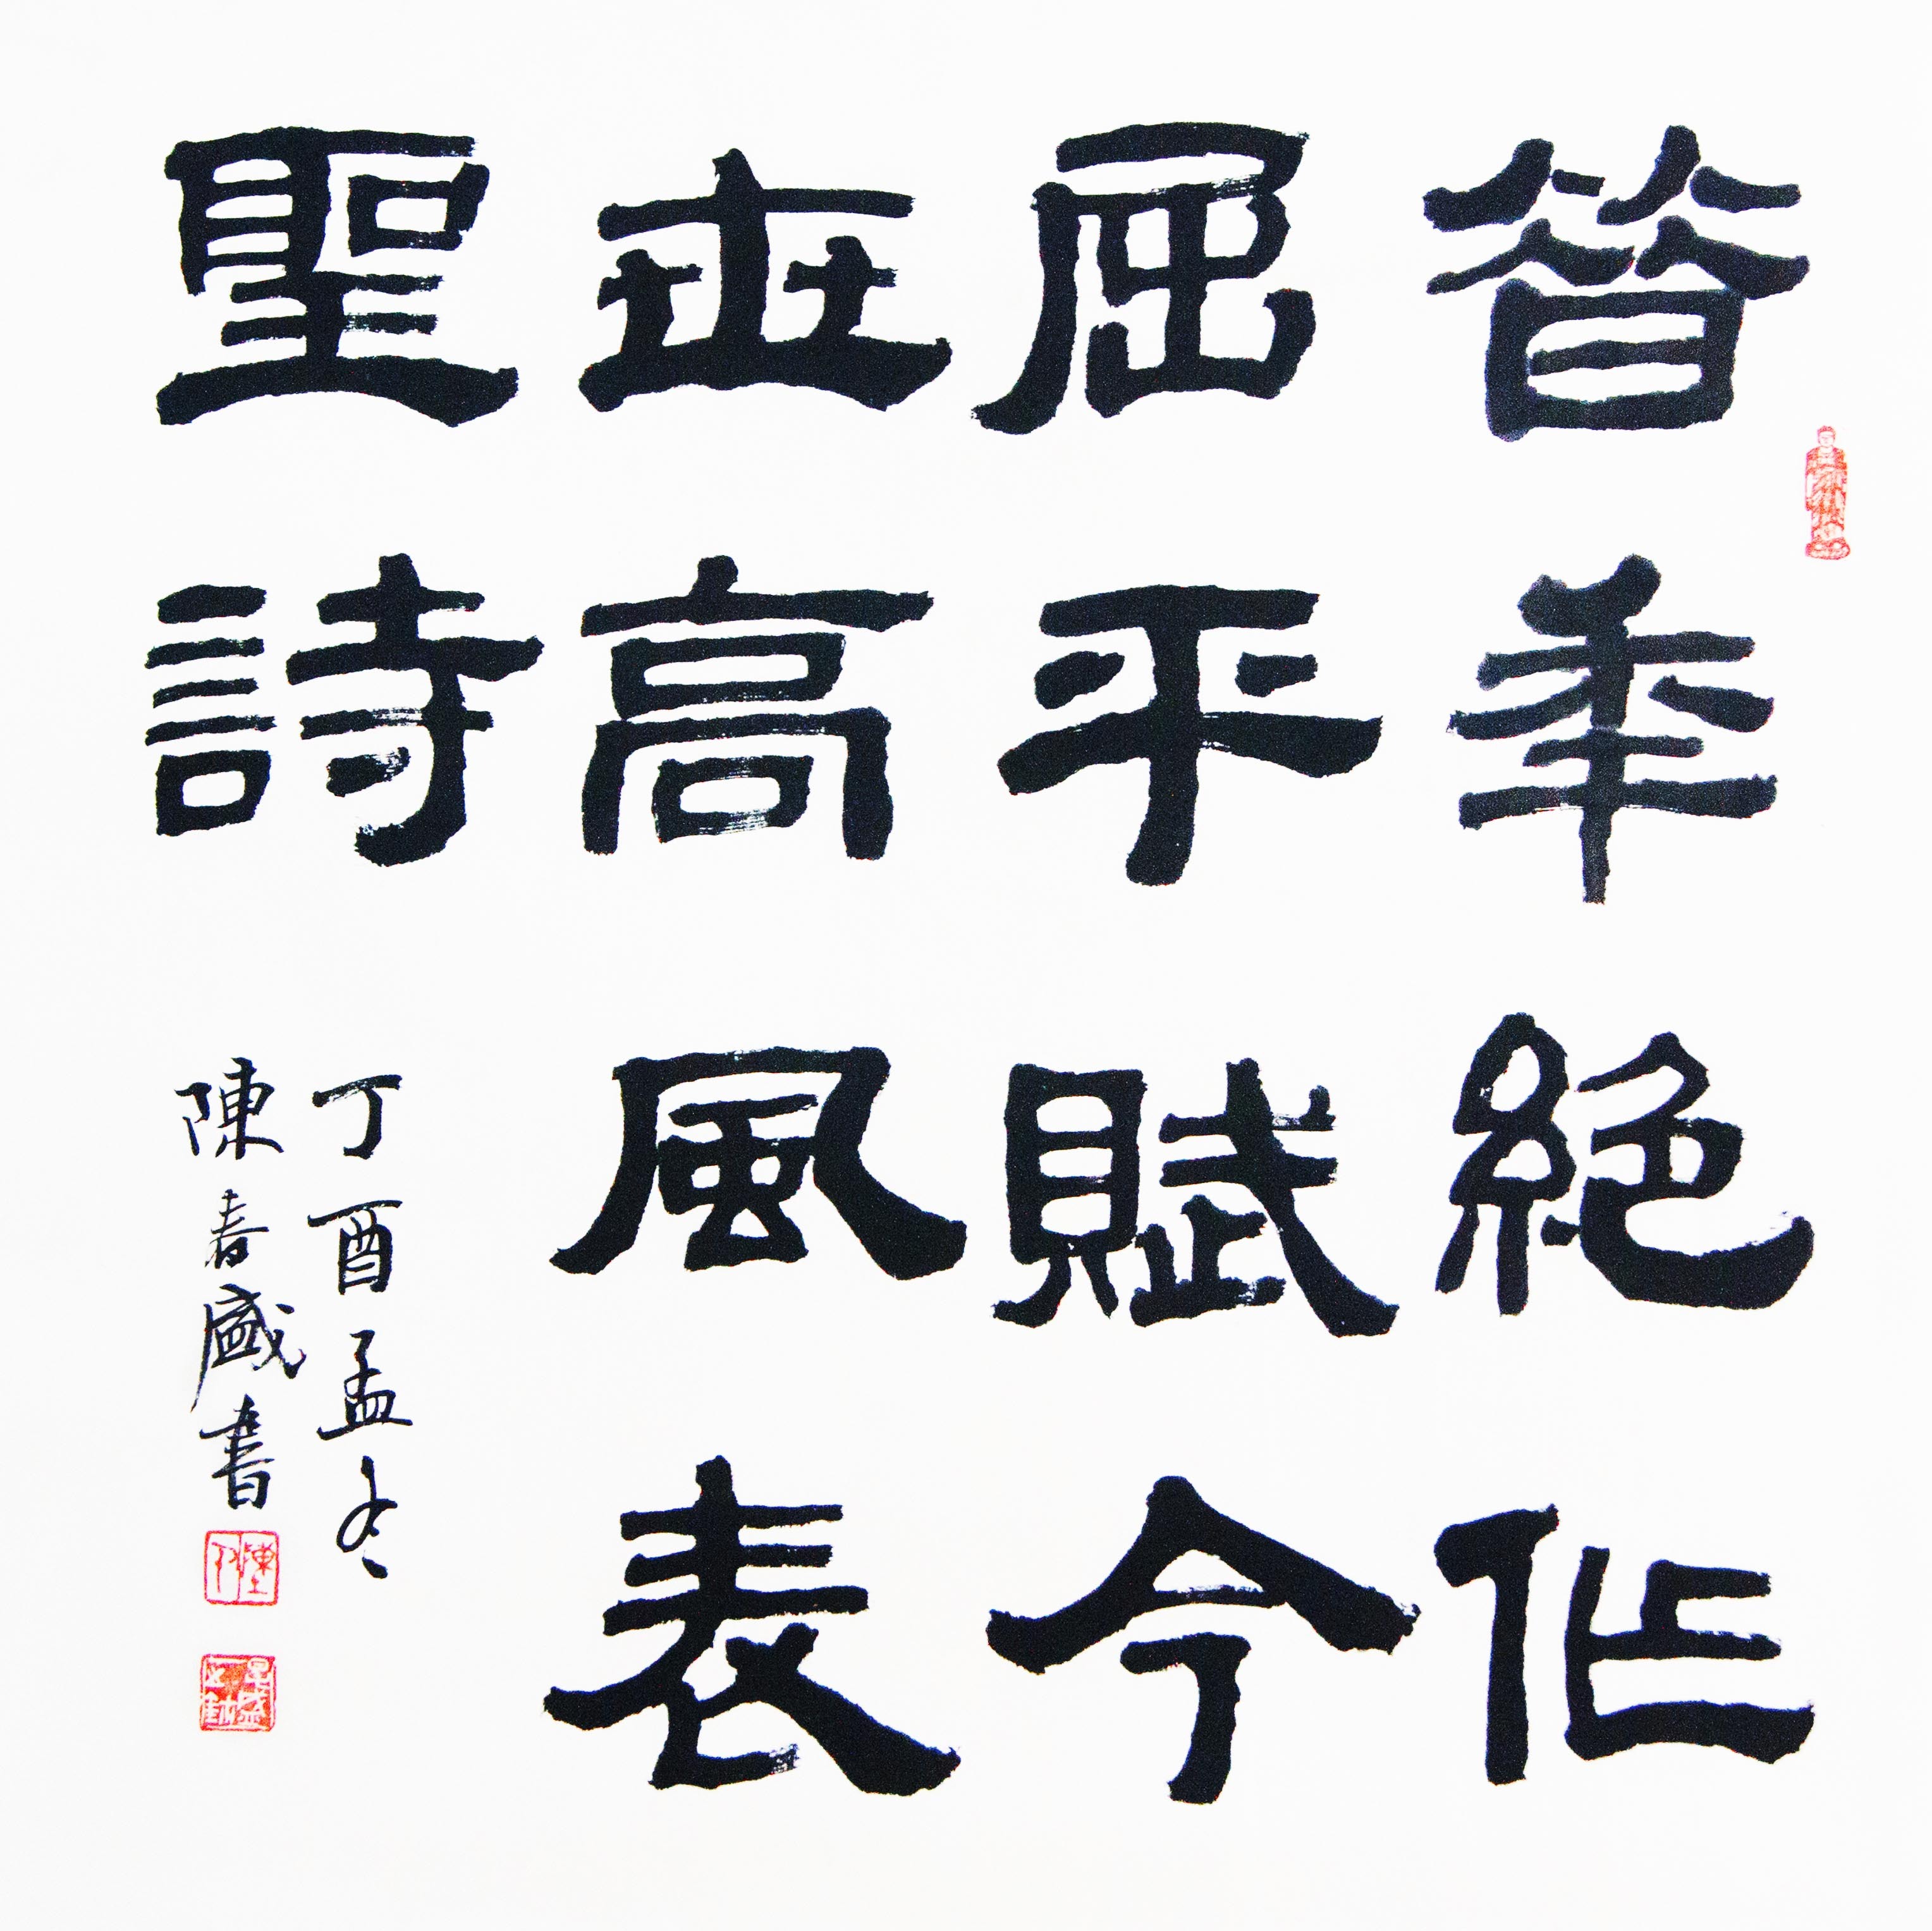 昔年絕作
屈平賦今
世高風表
聖詩
丁酉孟冬
陳春盛書